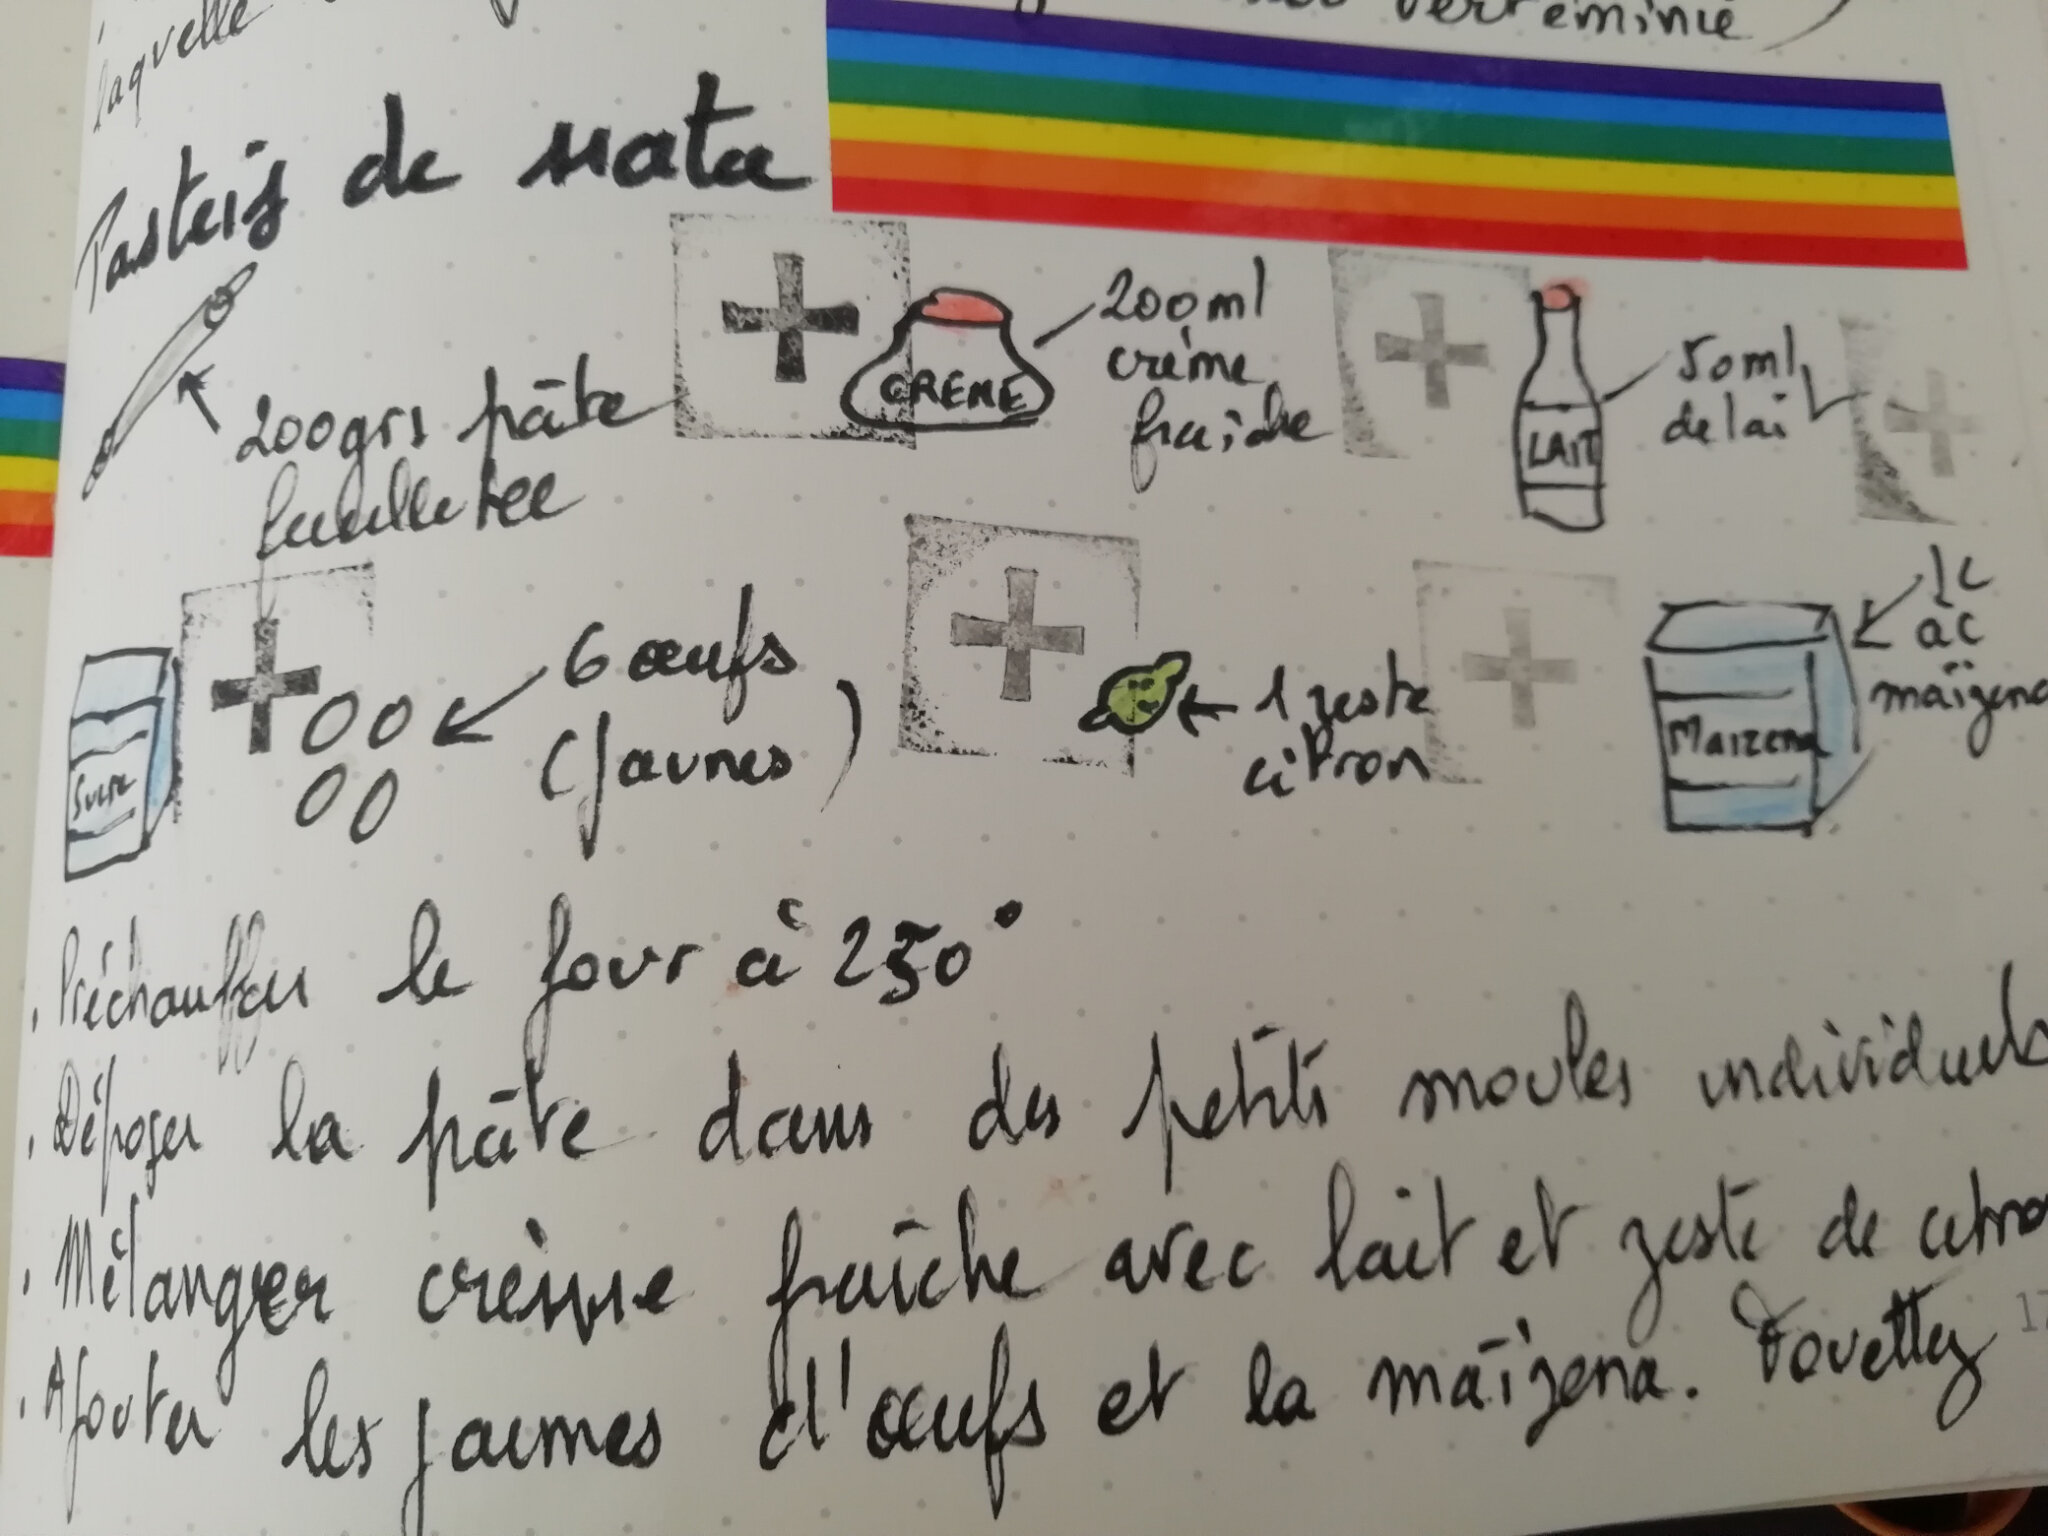 laquelle
vert éminié
Pasteis de nata
200grs pâte
feuilletée
CREME
200ml
crème
fraîche
LAIT
50ml
de lai
Sucre
6 œufs
(Jaunes)
1 zeste
citron
Maizena
1c
àc
maïzena
. Préchauffer le four à 250°
. Déposer la pâte dans des petits moules individuels
. Mélanger crème fraîche avec lait et zeste de citro
. Ajouter les jaunes d'œufs et la maïzena. Fouettez